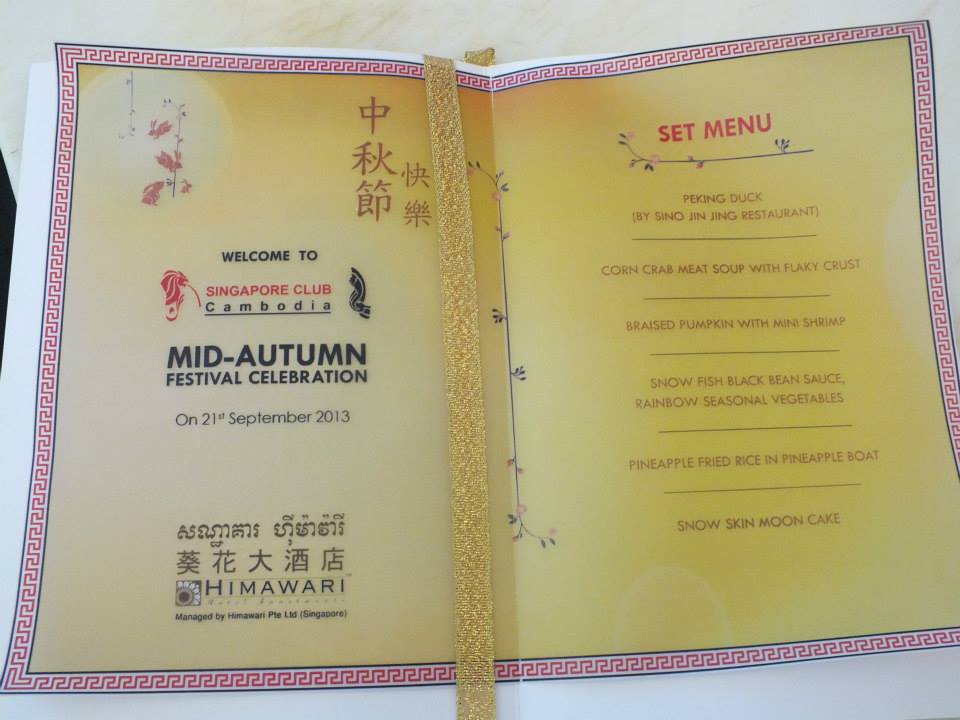 中秋節
快樂
WELCOME TO
SINGAPORE CLUB
Cambodia
MID-AUTUMN
FESTIVAL CELEBRATION
On 21st September 2013
សណ្ឋាគារ ហ៊ីម៉ាវ៉ារី
葵花大酒店
HIMAWARI
Hotel Apartments
Managed by Himawari Pte Ltd (Singapore)
SET MENU
PEKING DUCK
(BY SINO JIN JING RESTAURANT)
CORN CRAB MEAT SOUP WITH FLAKY CRUST
BRAISED PUMPKIN WITH MINI SHRIMP
SNOW FISH BLACK BEAN SAUCE,
RAINBOW SEASONAL VEGETABLES
PINEAPPLE FRIED RICE IN PINEAPPLE BOAT
SNOW SKIN MOON CAKE